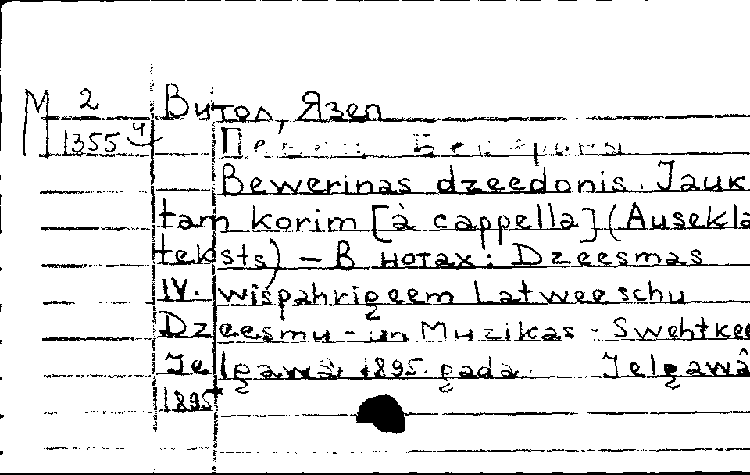 М 2 Витол, Язеп
1355 ч
Певец Беверины
Bewerinas dzeedonis. Jauk
tam korim [à cappella] (Ausekla
teksts) – В нотах: Dzeesmas
IV. wispahrigeem Latweeschu
Dzeesmu - un Muzikas - Swehtkee
Jelgawâ 1895. gada. Jelgawâ
1895